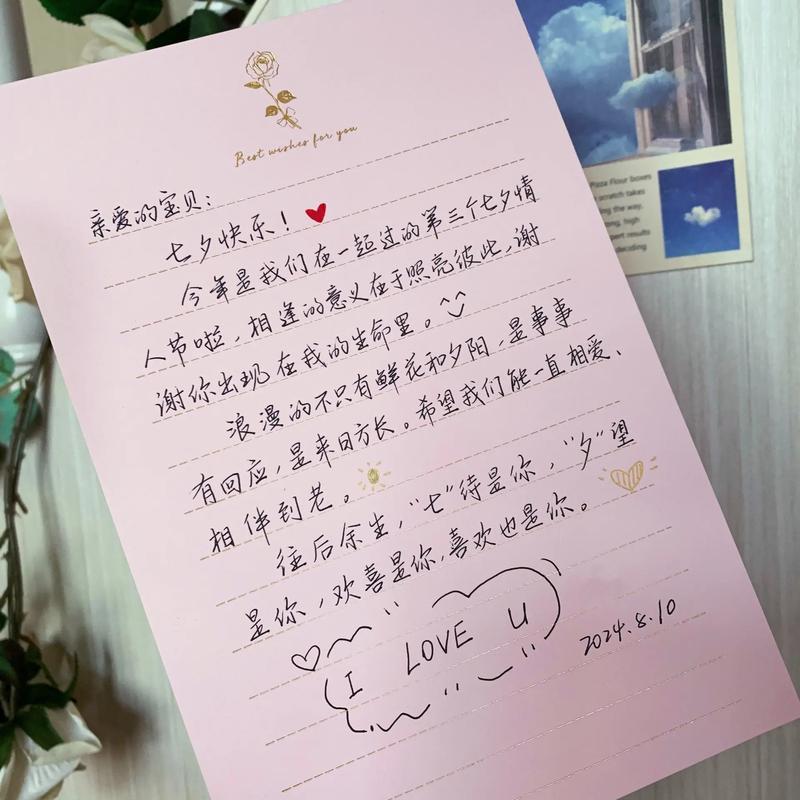 Best wishes for you
亲爱的宝贝：
七夕快乐！
今年是我们在一起过的第三个七夕情
人节啦，相逢的意义在于照亮彼此，谢
谢你出现在我的生命里。^^
浪漫的不只有鲜花和夕阳，是事事
有回应，是来日方长。希望我们能一直相爱、
相伴到老。
往后余生，“七”待是你，“夕”望
是你，欢喜是你，喜欢也是你。
I LOVE U
2024.8.10
Pizza Flour boxes
scratch takes
ing the way.
high
results
decoding